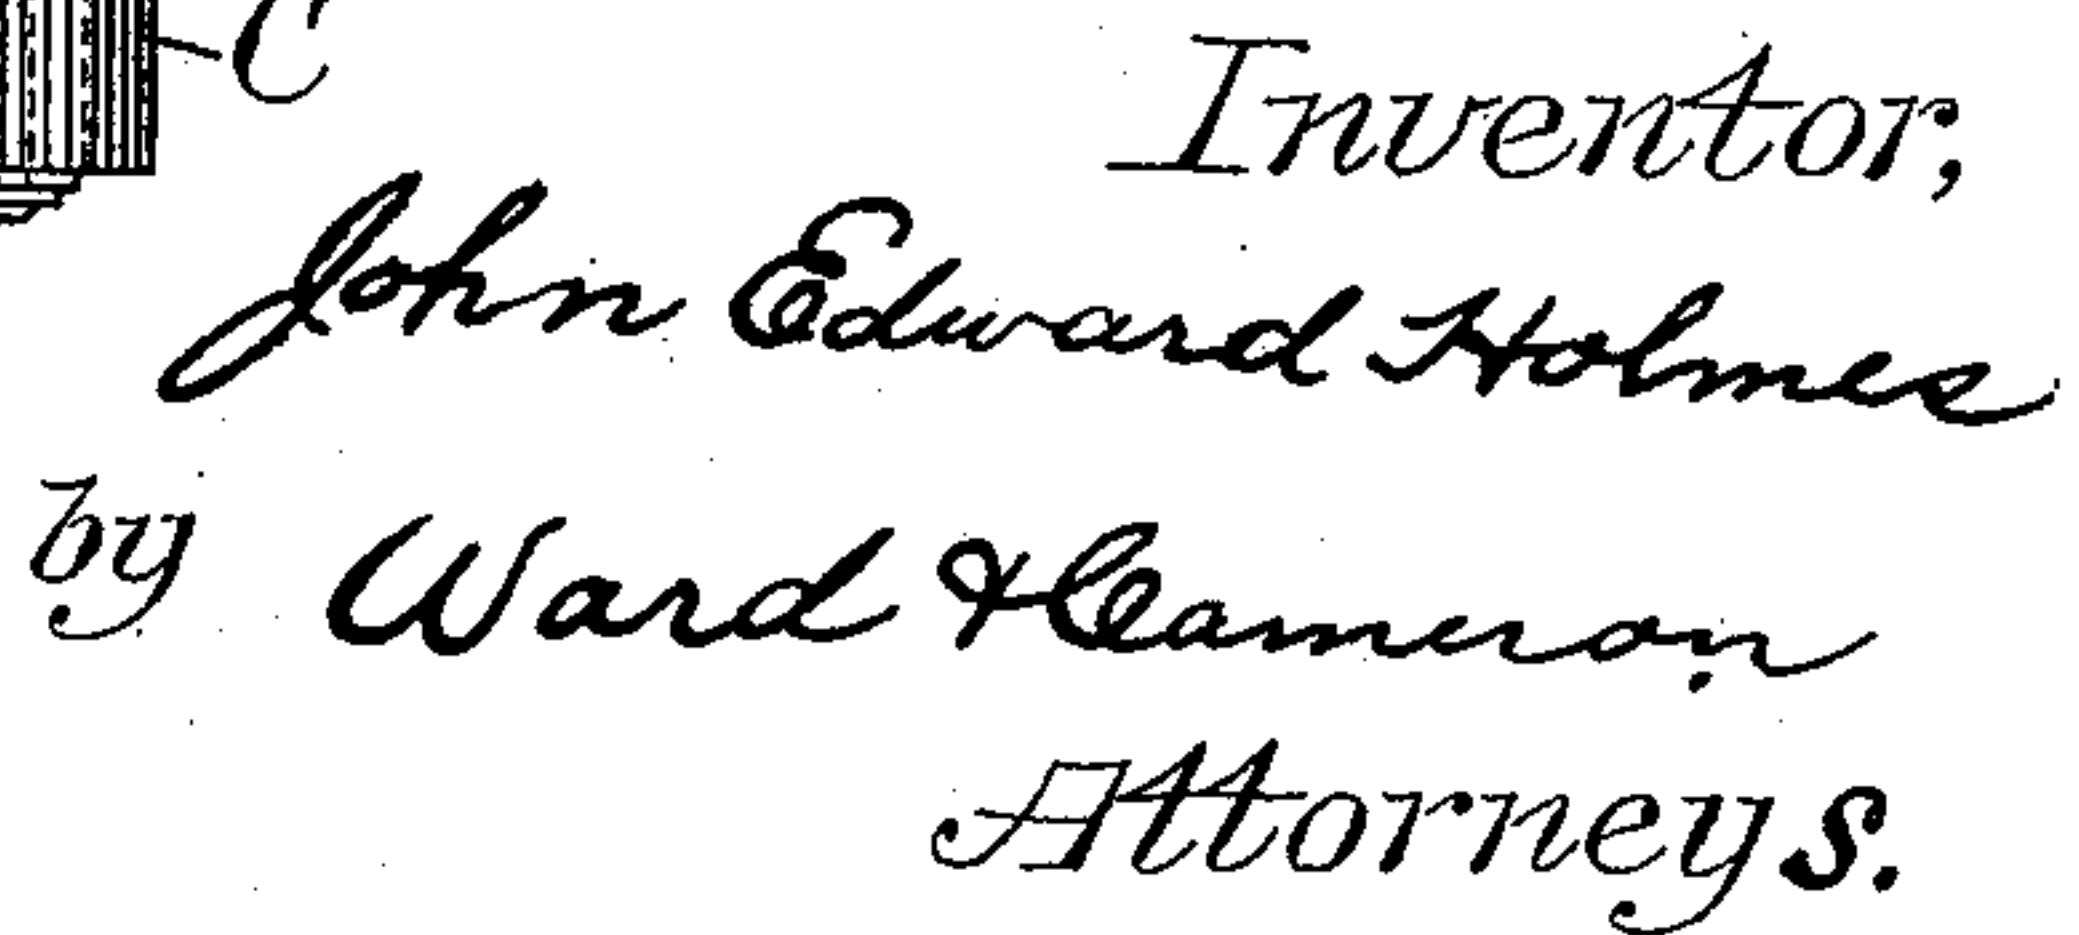 C
Inventor,
John Edward Holmes
by Ward & Cameron
Attorneys.